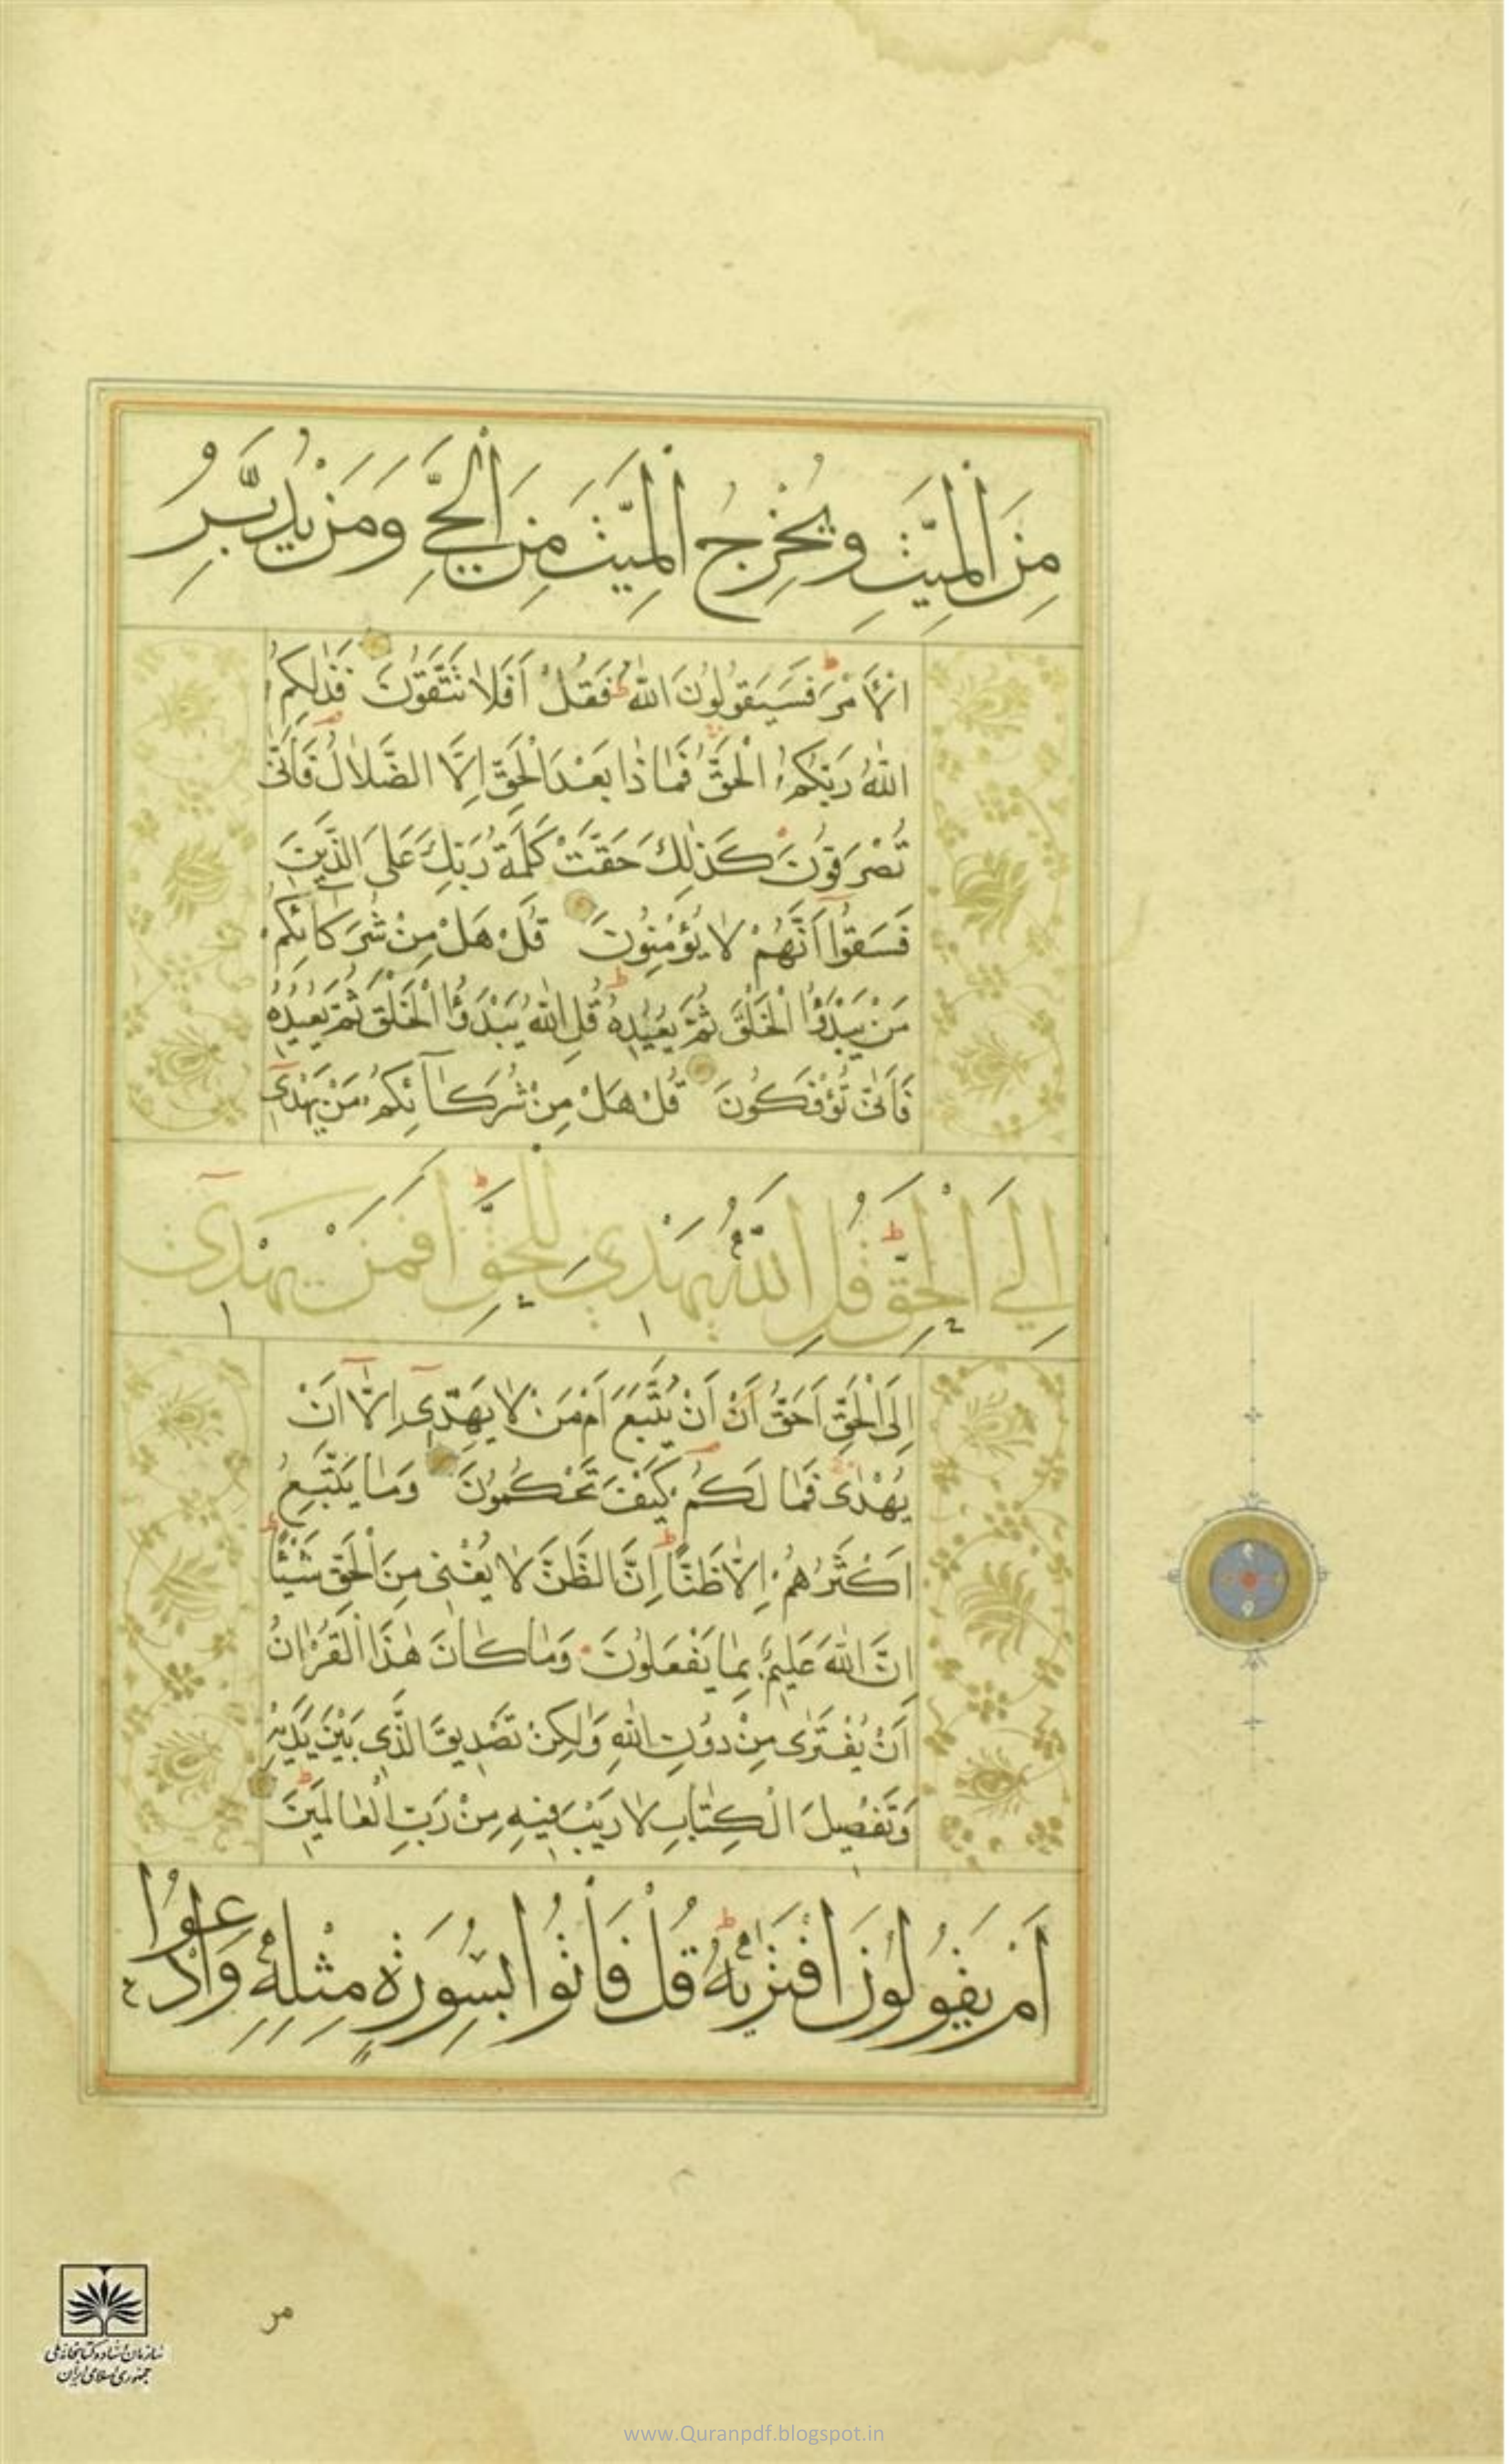 مِنَ الْمَيِّتِ وَيُخْرِجُ الْمَيِّتَ مِنَ الْحَيِّ وَمَنْ يُدَبِّرُ
الْأَمْرَ فَسَيَقُولُونَ اللّٰهُ ط فَقُلْ أَفَلَا تَتَّقُونَ فَذٰلِكُمُ
اللّٰهُ رَبُّكُمُ الْحَقُّ فَمَاذَا بَعْدَ الْحَقِّ اِلَّا الضَّلٰالُ فَاَنّٰى
تُصْرَفُونَ كَذٰلِكَ حَقَّتْ كَلِمَةُ رَبِّكَ عَلَى الَّذِينَ
فَسَقُوا اَنَّهُمْ لٰا يُؤْمِنُونَ قُلْ هَلْ مِنْ شُرَكَائِكُمْ
مَنْ يَبْدَؤُا الْخَلْقَ ثُمَّ يُعِيدُهُ ط قُلِ اللّٰهُ يَبْدَؤُا الْخَلْقَ ثُمَّ يُعِيدُهُ
فَاَنّٰى تُؤْفَكُونَ قُلْ هَلْ مِنْ شُرَكٰائِكُمْ مَنْ يَهْدِى
اِلَى الْحَقِّ ط قُلِ اللّٰهُ يَهْدِي لِلْحَقِّ ط اَفَمَنْ يَهْدِى
اِلَى الْحَقِّ اَحَقُّ اَنْ اَنْ يُتَّبَعَ اَمْ مَنْ لٰا يَهِدِّى اِلّٰا اَنْ
يُهْدٰى فَمٰا لَكُمْ كَيْفَ تَحْكُمُونَ وَمٰا يَتَّبِعُ
اَكْثَرُهُمْ اِلّٰا ظَنًّا ط اِنَّ الظَّنَّ لٰا يُغْنِى مِنَ الْحَقِّ شَيْئًا ط
اِنَّ اللّٰهَ عَلِيمٌ بِمٰا يَفْعَلُونَ وَمٰا كٰانَ هٰذَا الْقُرْاٰنُ
اَنْ يُفْتَرٰى مِنْ دُونِ اللّٰهِ وَلٰكِنْ تَصْدِيقَ الَّذِى بَيْنَ يَدَيْهِ
وَتَفْصِيلَ الْكِتٰابِ لٰا رَيْبَ فِيهِ مِنْ رَبِّ الْعٰالَمِينَ ط
اَمْ يَقُولُونَ افْتَرٰيهُ ط قُلْ فَاْتُوا بِسُورَةٍ مِثْلِهِ وَادْعُوا
من
سازمان اسناد و کتابخانه ملی
جمهوری اسلامی ایران
www.Quranpdf.blogspot.in